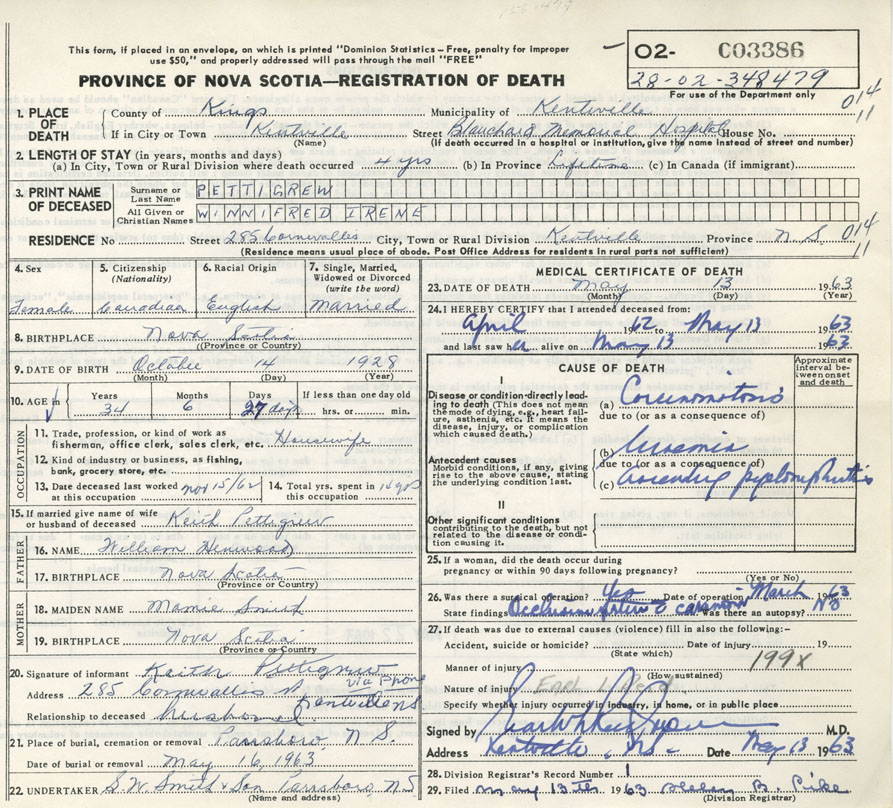 This form, if placed in an envelope, on which is printed "Dominion Statistics – Free, penalty for improper
use $50," and properly addressed will pass through the mail "FREE"
PROVINCE OF NOVA SCOTIA—REGISTRATION OF DEATH
O2- C03386
28-02-348479
For use of the Department only
1. PLACE OF DEATH
County of Kings Municipality of Kentville 014 11
If in City or Town Kentville Street Blanchard Memorial Hospital House No.
(Name) (If death occurred in a hospital or institution, give the name instead of street and number)
2. LENGTH OF STAY (in years, months and days)
(a) In City, Town or Rural Division where death occurred 4 yrs (b) In Province Lifetime (c) In Canada (if immigrant).
3. PRINT NAME OF DECEASED
Surname or Last Name PETTIGREW
All Given or Christian Names WINNIFRED IRENE
RESIDENCE No Street 285 Cornwallis City, Town or Rural Division Kentville Province N.S. 014 11
(Residence means usual place of abode. Post Office Address for residents in rural parts not sufficient)
4. Sex Female
5. Citizenship (Nationality) Canadian
6. Racial Origin English
7. Single, Married, Widowed or Divorced (write the word) Married
8. BIRTHPLACE Nova Scotia
(Province or Country)
9. DATE OF BIRTH October 14 1928
(Month) (Day) (Year)
10. AGE in Years Months Days If less than one day old
34 6 27 days hrs. or min.
OCCUPATION
11. Trade, profession, or kind of work as fisherman, office clerk, sales clerk, etc. Housewife
12. Kind of industry or business, as fishing, bank, grocery store, etc.
13. Date deceased last worked at this occupation Nov 15/62
14. Total yrs. spent in this occupation yrs
15. If married give name of wife or husband of deceased Keith Pettigrew
FATHER
16. NAME William Henwood
17. BIRTHPLACE Nova Scotia
(Province or Country)
MOTHER
18. MAIDEN NAME Mamie Smith
19. BIRTHPLACE Nova Scotia
(Province or Country)
20. Signature of informant Keith Pettigrew
via Phone
Address 285 Cornwallis St Kentville NS
Relationship to deceased husband
21. Place of burial, cremation or removal Parrsboro, N.S.
Date of burial or removal May 16, 1963
22. UNDERTAKER S.W. Smith & Son Parrsboro N.S.
(Name and address)
MEDICAL CERTIFICATE OF DEATH
23. DATE OF DEATH May 13 1963
(Month) (Day) (Year)
24. I HEREBY CERTIFY that I attended deceased from:
April 1962 to May 13 1963
and last saw her alive on May 13 1963
CAUSE OF DEATH
Approximate interval between onset and death
I
Disease or condition directly leading to death (This does not mean the mode of dying, e.g., heart failure, asthenia, etc. It means the disease, injury, or complication which caused death.)
(a) Carcinomatosis
due to (or as a consequence of)
Antecedent causes
Morbid conditions, if any, giving rise to the above cause, stating the underlying condition last.
(b) Uraemia
due to (or as a consequence of)
(c) ascending pyelonephritis
II
Other significant conditions
contributing to the death, but not related to the disease or condition causing it.
25. If a woman, did the death occur during
pregnancy or within 90 days following pregnancy?
(Yes or No)
26. Was there a surgical operation? Yes Date of operation March 1963
State findings Was there an autopsy? No
27. If death was due to external causes (violence) fill in also the following:–
Accident, suicide or homicide? Date of injury 19
(State which)
Manner of injury 199X
(How sustained)
Nature of injury
Specify whether injury occurred in industry, in home, or in public place
Signed by M.D.
Address Kentville, NS. Date May 13 1963
28. Division Registrar's Record Number 1
29. Filed 13 1963 B. Pike
(Division Registrar)